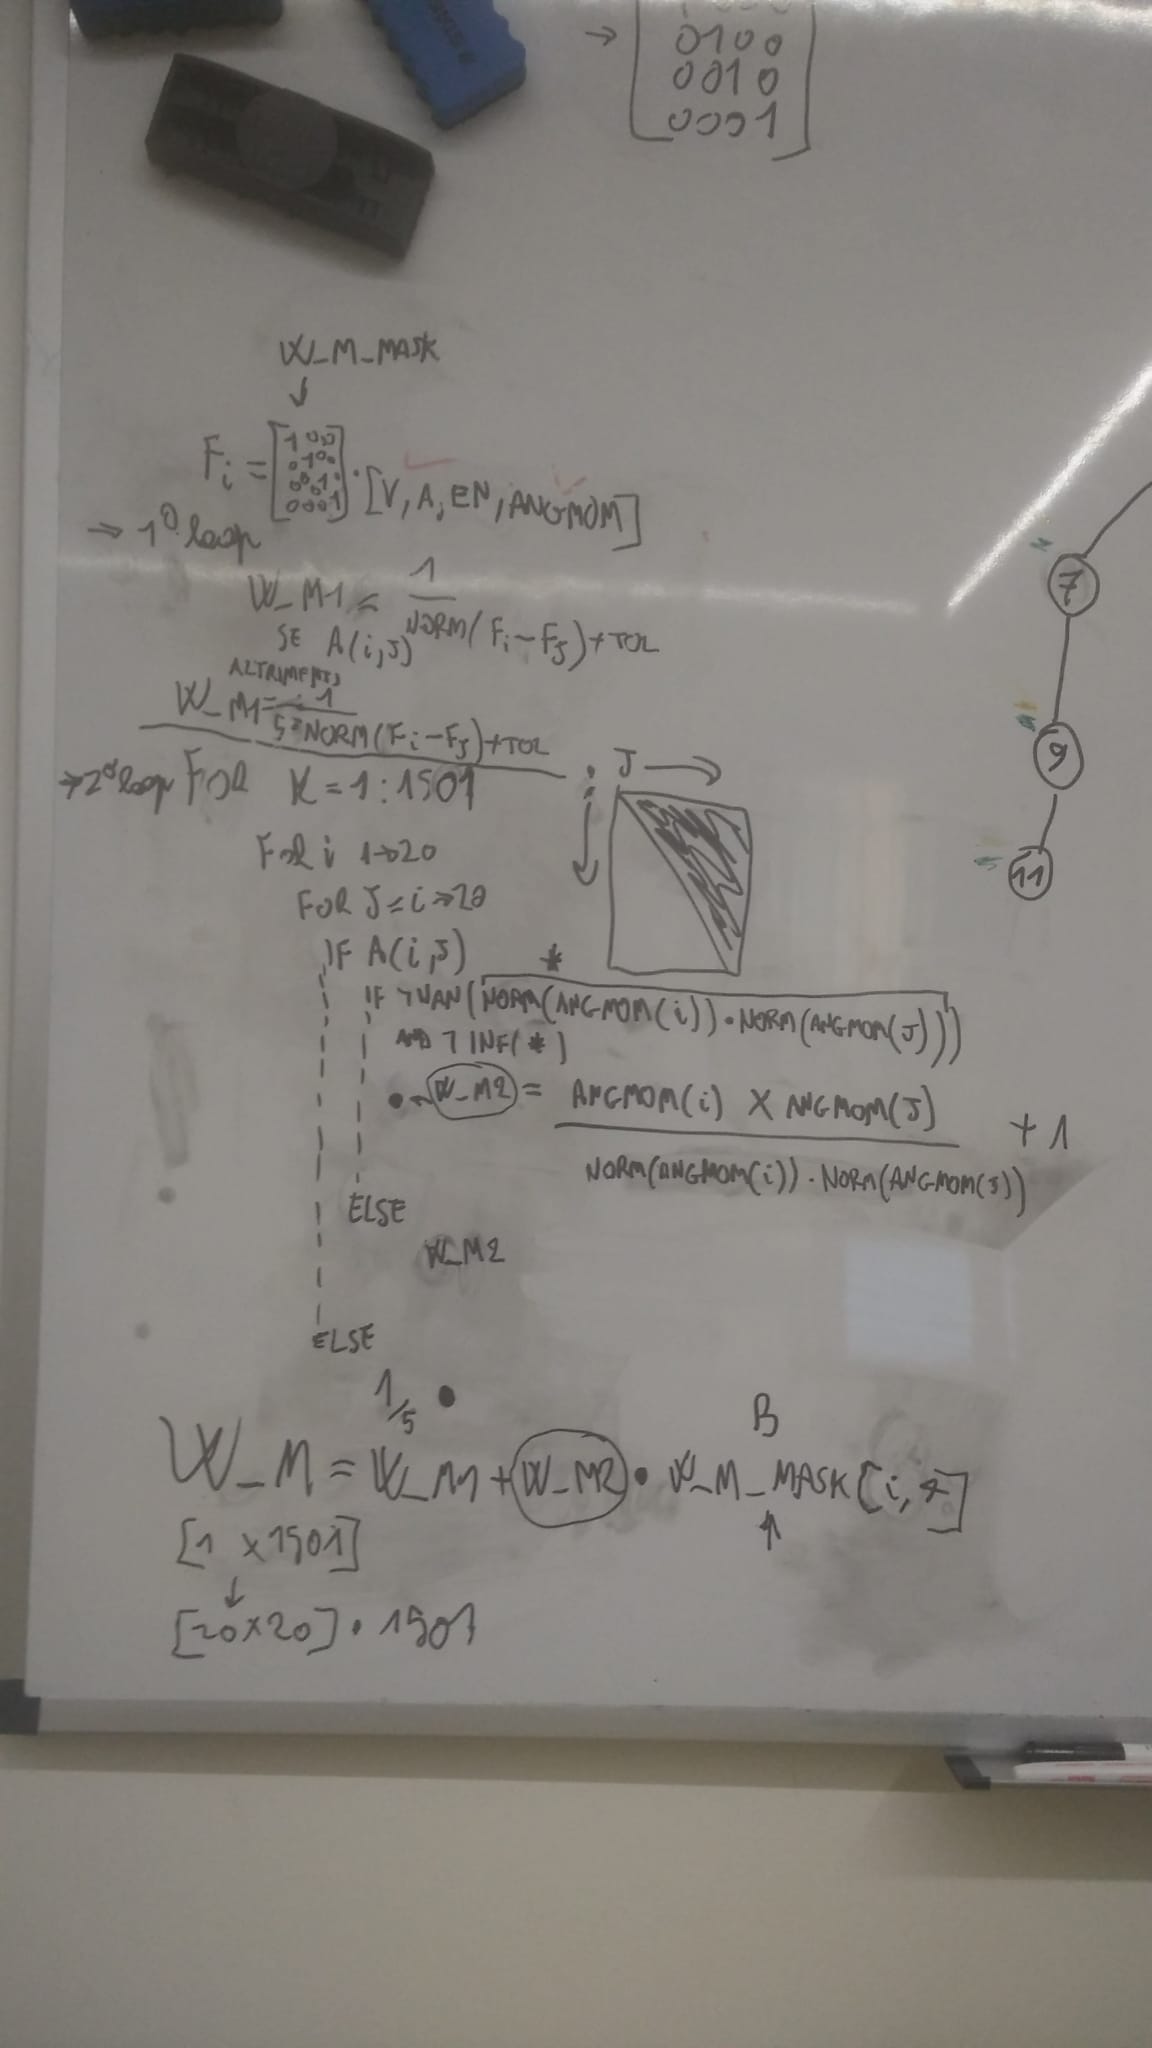 → 0100
0010
0001
W_M_MASK
↓
Fi = [1000 0100 0010 0001] · [V, A, EN, ANGMOM]
→ 1° loop
W_M1 = 1 / NORM(Fi - FJ) + TOL
SE A(i,J)
ALTRIMENTI
W_M1 = 1 / 5*NORM(Fi - FJ) + TOL
→ 2° loop FOR K = 1:1501
J →
FOR i 1→20
FOR J = i → 20
IF A(i,J)
*
IF ¬NAN(NORM(ANGMOM(i)) · NORM(ANGMOM(J)))
AND ¬INF(*)
W_M2 = ANGMOM(i) X ANGMOM(J) / NORM(ANGMOM(i)) · NORM(ANGMOM(J)) + 1
ELSE
W_M2
ELSE
1/5 ·
B
W_M = W_M1 + W_M2 · W_M_MASK[i,4]
↑
[1 x 1501]
↓
[20x20] · 1501
7
9
11